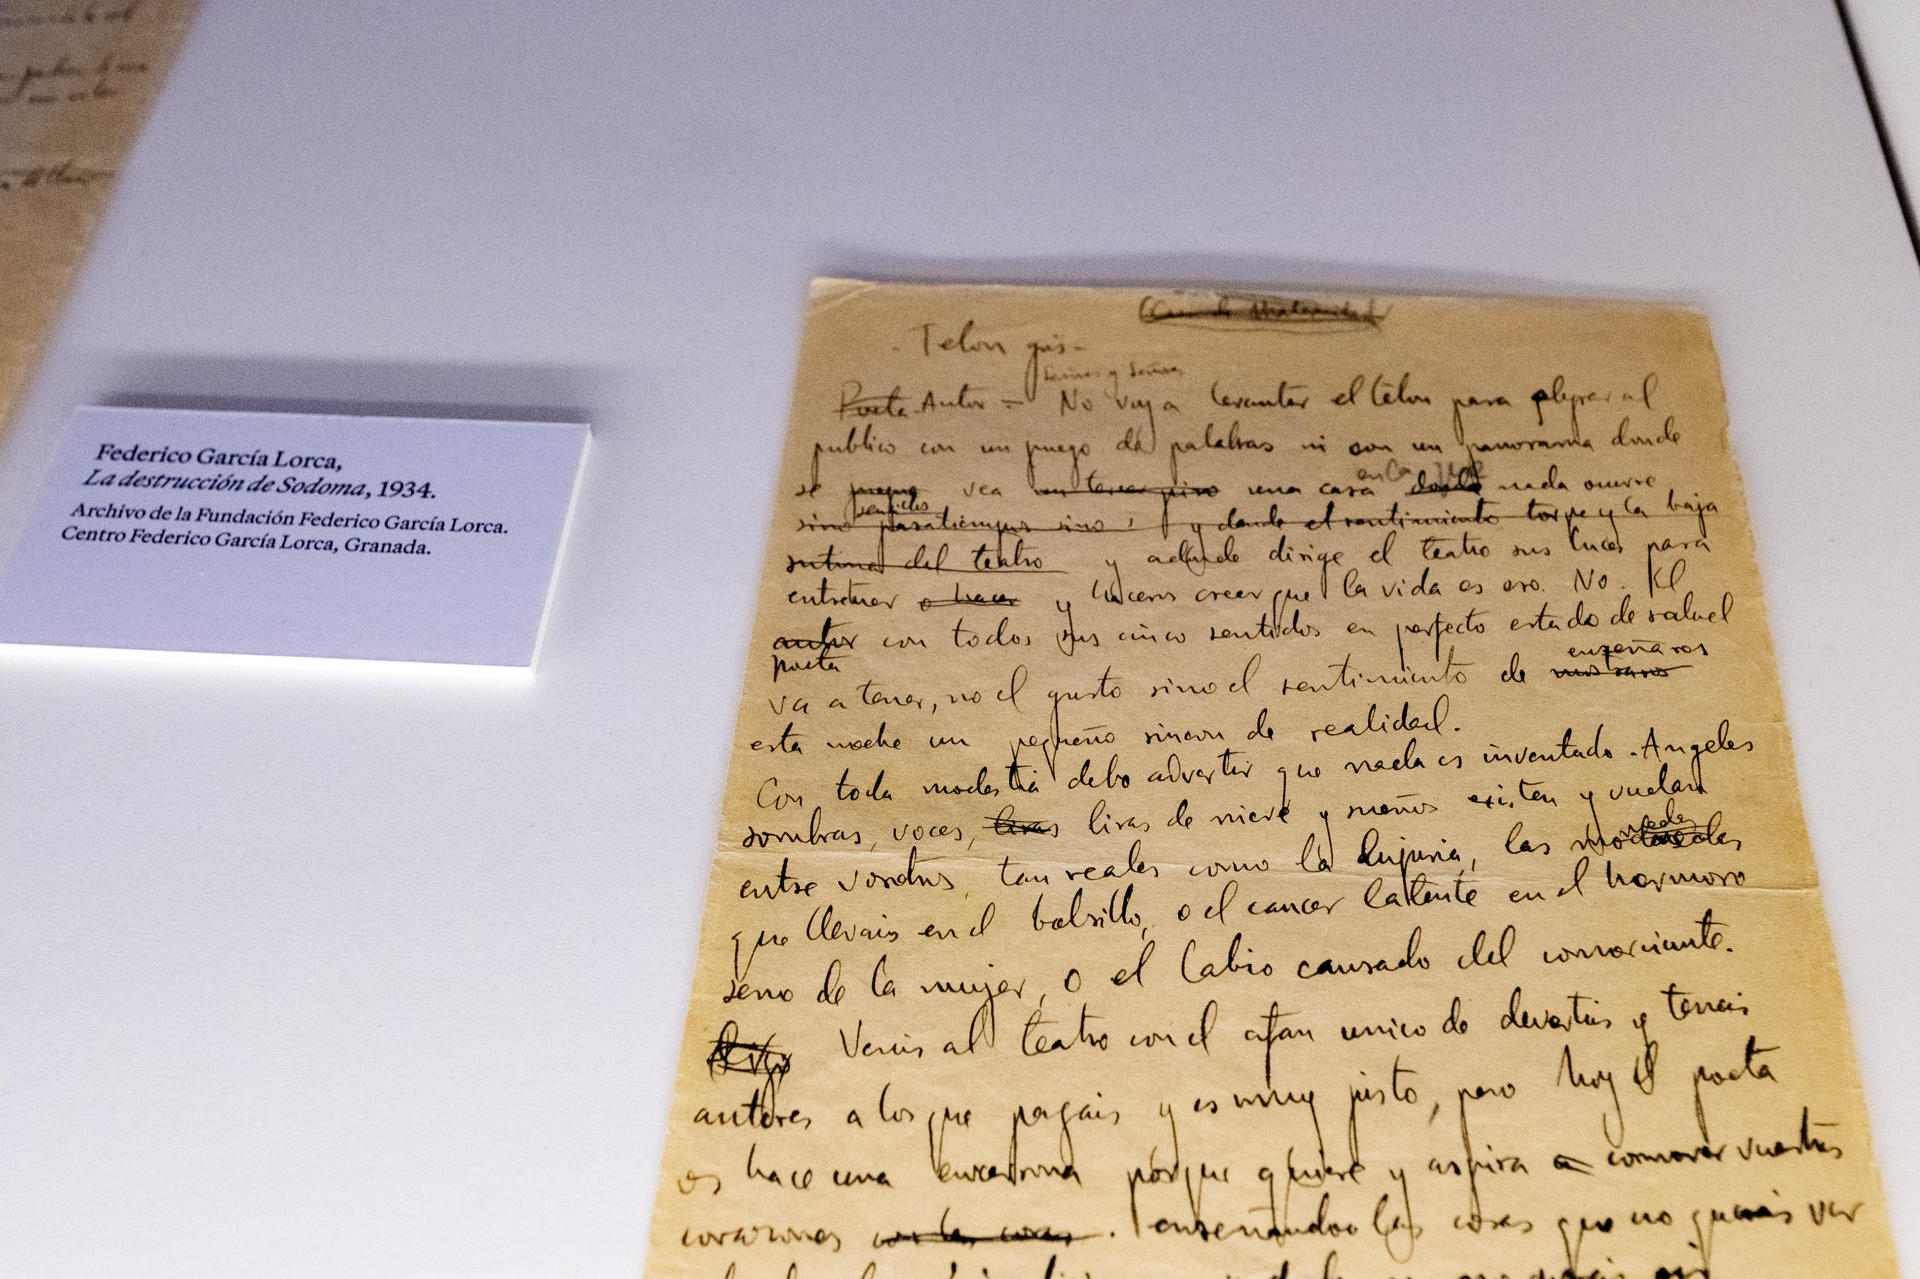 Federico García Lorca,
La destrucción de Sodoma, 1934.
Archivo de la Fundación Federico García Lorca.
Centro Federico García Lorca, Granada.
(Casa de Maternidad)
- Telon gris -
Señoras y Señores
Poeta Autor = No voy a levantar el telon para alegrar al
publico con un juego de palabras ni con un panorama donde
se vea un tercer piso una casa en la que donde nada ocurre
sentidos
sino pasatiempos sino y donde el sentimiento torpe y la baja
rutina del teatro y adonde dirige el teatro sus luces para
entretener o hacer y haceros creer que la vida es eso. No. El
autor con todos sus cinco sentidos en perfecto estado de salud
poeta
enseñaros
va a tener, no el gusto sino el sentimiento de mostraros
esta noche un pequeño rincon de realidad.
Con toda modestia debo advertir que nada es inventado. Angeles
sombras, voces, liras liras de nieve y sueños existen y vuelan
entre vosotros, tan reales como la lujuria, las monedas
que llevais en el bolsillo, o el cancer latente en el hermoso
seno de la mujer, o el labio cansado del comerciante.
Venis al teatro con el afan unico de divertiros y teneis
autores a los que pagais y es muy justo, pero hoy el poeta
os hace una encerrona porque quiere y aspira a conmover vuestros
corazones con las cosas. enseñandoos las cosas que no quereis ver